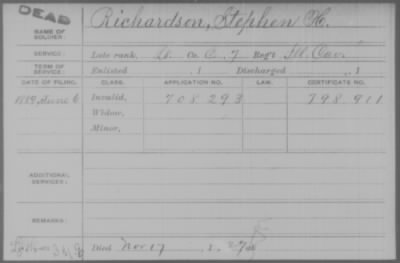 DEAD
NAME OF SOLDIER: Richardson, Stephen H.
SERVICE: Late rank, Co. C, 7 Reg't Ill. Cav.
TERM OF SERVICE: Enlisted , 1 Discharged , 1
DATE OF FILING. CLASS. APPLICATION NO. LAW. CERTIFICATE NO.
1889, June 6 Invalid, 708 293 798 911
Widow,
Minor,
ADDITIONAL SERVICES:
REMARKS:
Died Nov 17